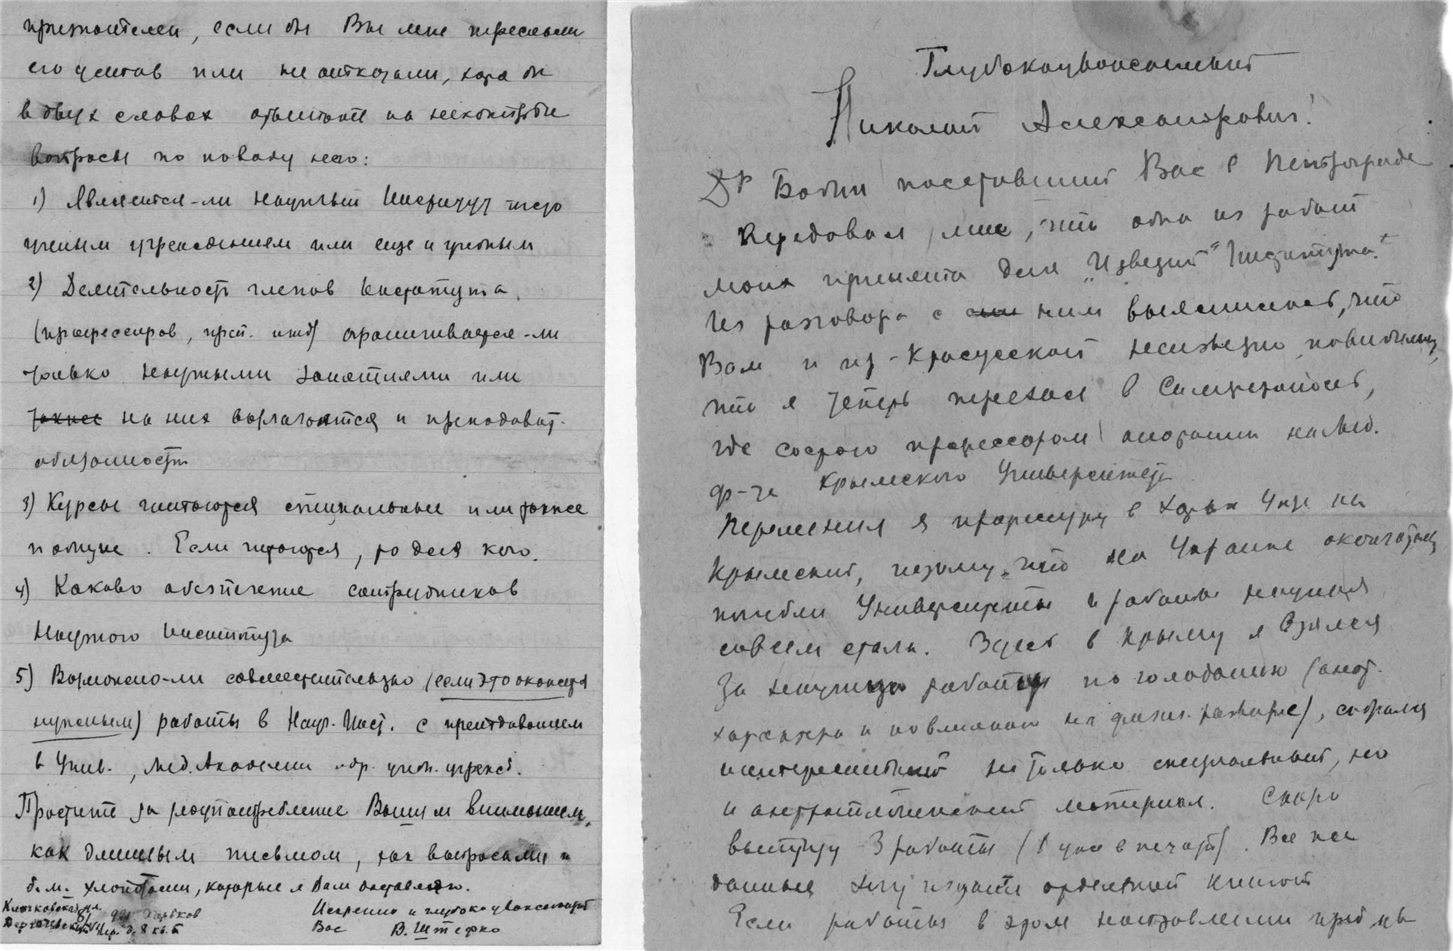 признателен, если бы Вы мне переслали
его устав или не отказали, хотя бы
в двух словах ответить на некоторые
вопросы по поводу него:
1) Является-ли научный Институт чисто
ученым учреждением или еще и учебным
2) Деятельность членов Института,
(профессоров, преп. итд) ограничивается-ли
только научными занятиями или
также на них возлагаются и преподават.
обязанности
3) Курсы читаются специальные или также
и общие. Если читаются, то для кого.
4) Каково обеспечение сотрудников
Научного Института
5) Возможно-ли совместительство (если это окажется
нужным) работы в Науч. Инст. с преподаванием
в Унив., Мед. Академии и др. учен. учрежд.
Простите за злоупотребление Вашим вниманием,
как длинным письмом, так вопросами и
б. м. хлопотами, которые я Вам доставляю.
Искренно и глубоко уважающий
Вас В. Штефко
Харьков
пер. д. 8 кв. 6
Глубокоуважаемый
Николай Александрович!
Др Бабин посетивший Вас в Петрограде
передавал мне, что одна из работ
моих принята для "Известий" Института.
Из разговора с ним выяснилось, что
Вам и пр-Красусской неизвестно, повидимому,
что я теперь переехал в Симферополь,
где состою профессором анатомии на Мед.
ф-те Крымского Университета
Переменил я профессуру в Харьк Унив на
Крымский, потому что на Украине окончательно
погибли Университеты и работа научная
совсем стала. Здесь в Крыму я взялся
за научную работу по голоданию (анат.
характера и о влиянии на физич. развитие), собрался
интересный не только специальный, но
и антропологический материал. Скоро
выйдут 3 работы (1 уже в печати). Все же
данные хочу издать отдельной книгой
Если работы в этом направлении